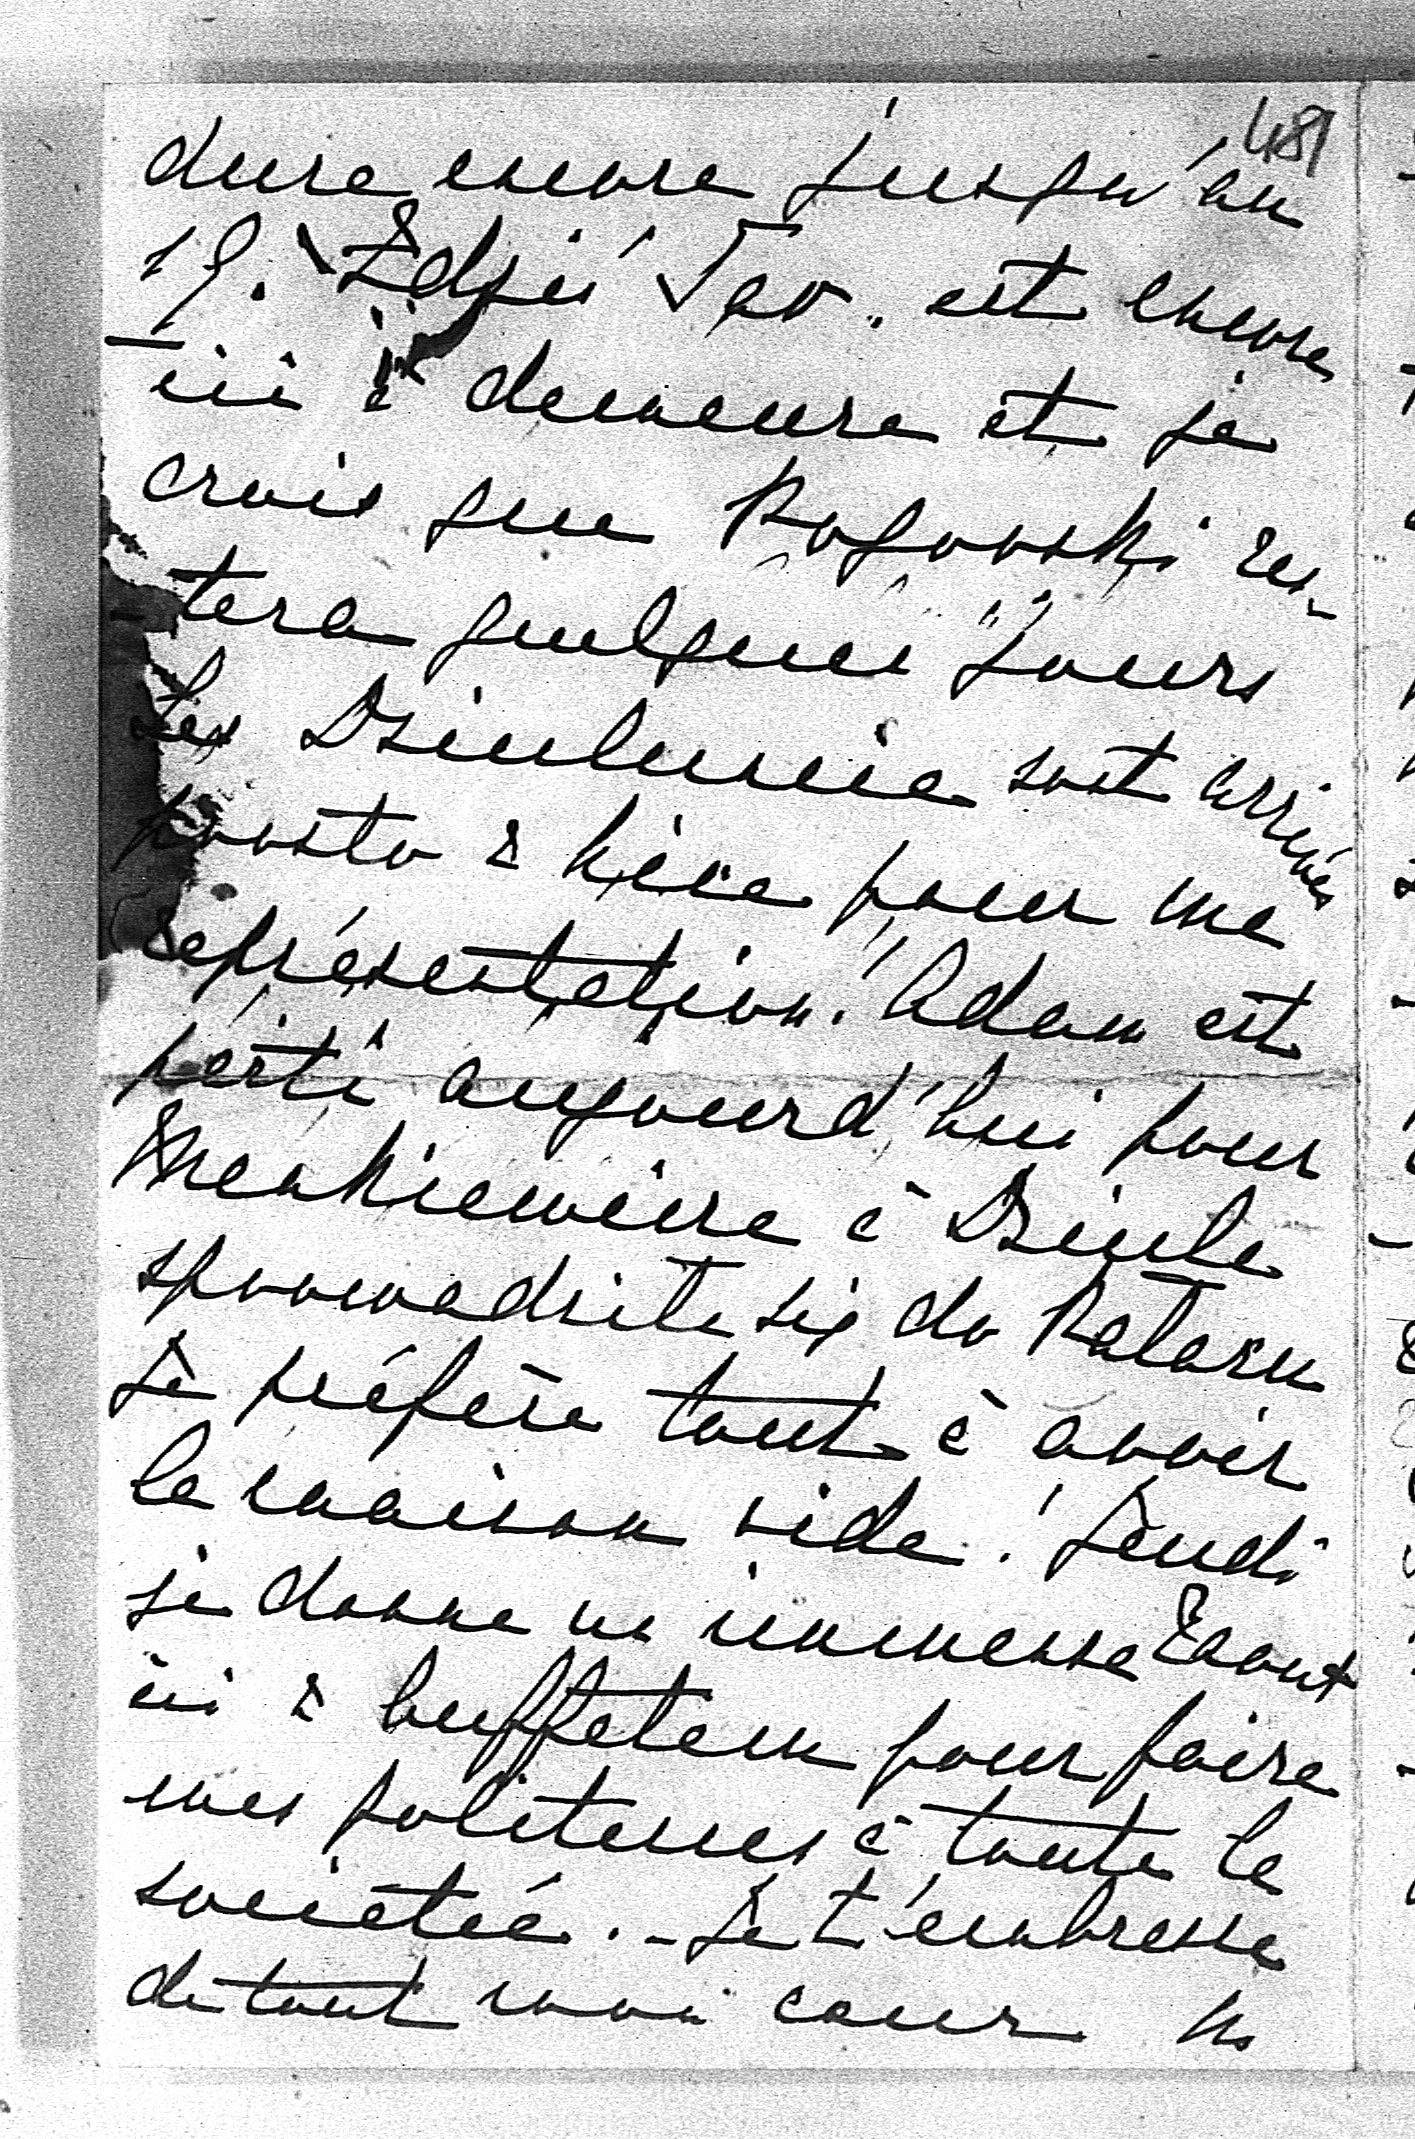 481
dure encore jusqu'au
19. Zdziś Tar. est encore
ici à demeure et je
crois que Rogowski res-
tera quelques jours
Les Dziuluncie sont arrivés
prosto z kica pour ma
représentation! Adam est
parti aujourd'hui pour
à Dziule
sprowadzite się do
Je préfère tout à avoir
la maison vide! Jeudi
je donne un immense Raout
ici z bufetem pour faire
mes politesses à toute la
sociétée. - Je t'embrasse
de tout mon cœur M